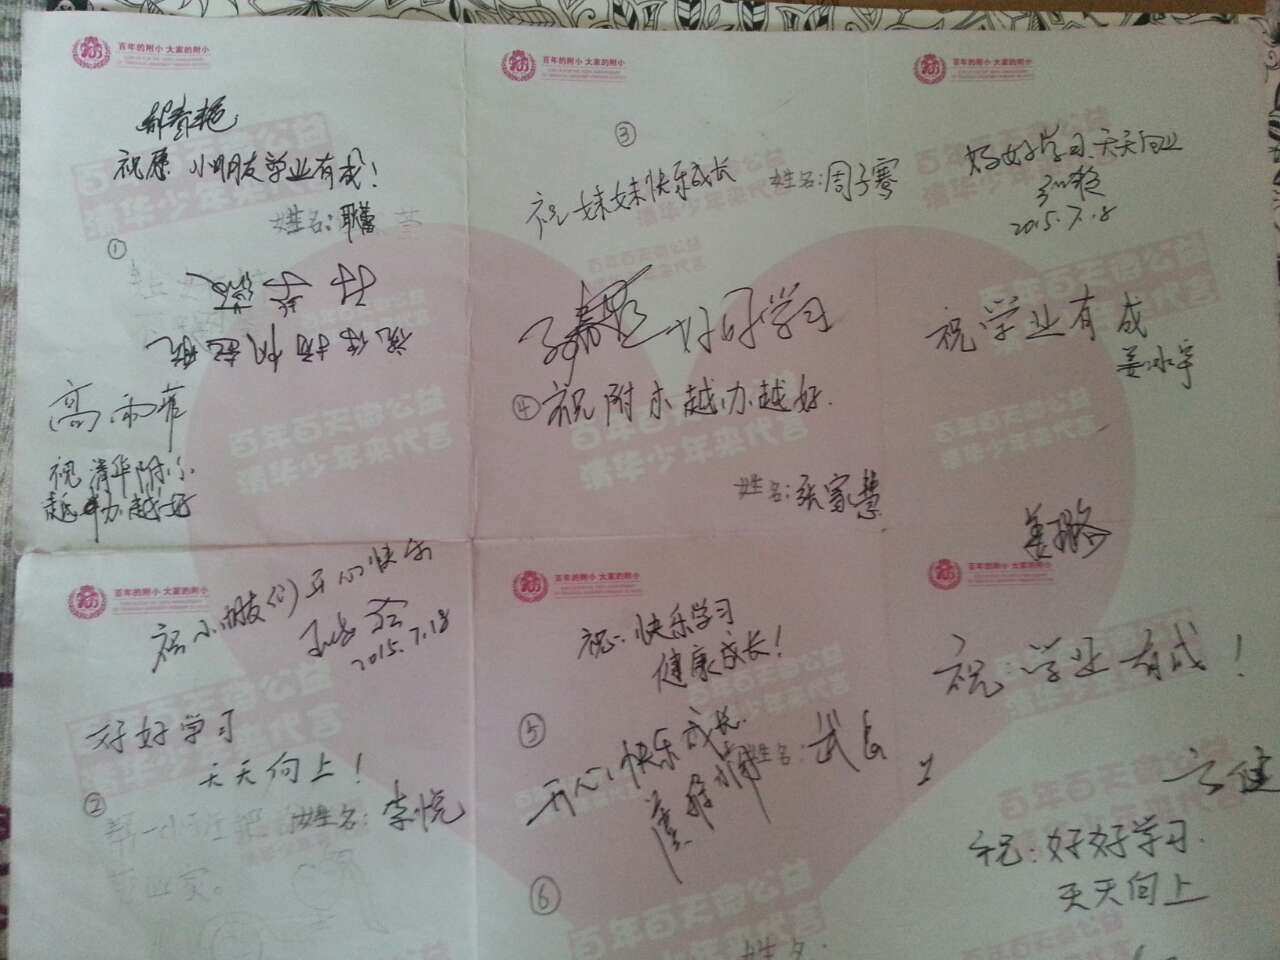 百年的附小 大家的附小
祝愿 小朋友学业有成!
姓名:耿蕾
①
高雨菲
祝清华附小
越办越好
百年的附小 大家的附小
③
祝妹妹快乐成长
姓名:周子骞
好好学习
④祝附小越办越好.
姓名:张家慧
百年的附小 大家的附小
好好学习天天向上
2015.7.18
祝学业有成
姜冰宇
姜璐
百年的附小 大家的附小
祝小朋友(们)开心快乐
2015.7.18
好好学习
天天向上!
②
姓名:李悦
百年的附小 大家的附小
祝:快乐学习
健康成长!
⑤
姓名:武
开心快乐成长.
⑥
姓名:
百年的附小 大家的附小
祝:学业有成!
方健
祝:好好学习.
天天向上
百年百天做公益
清华少年来代言